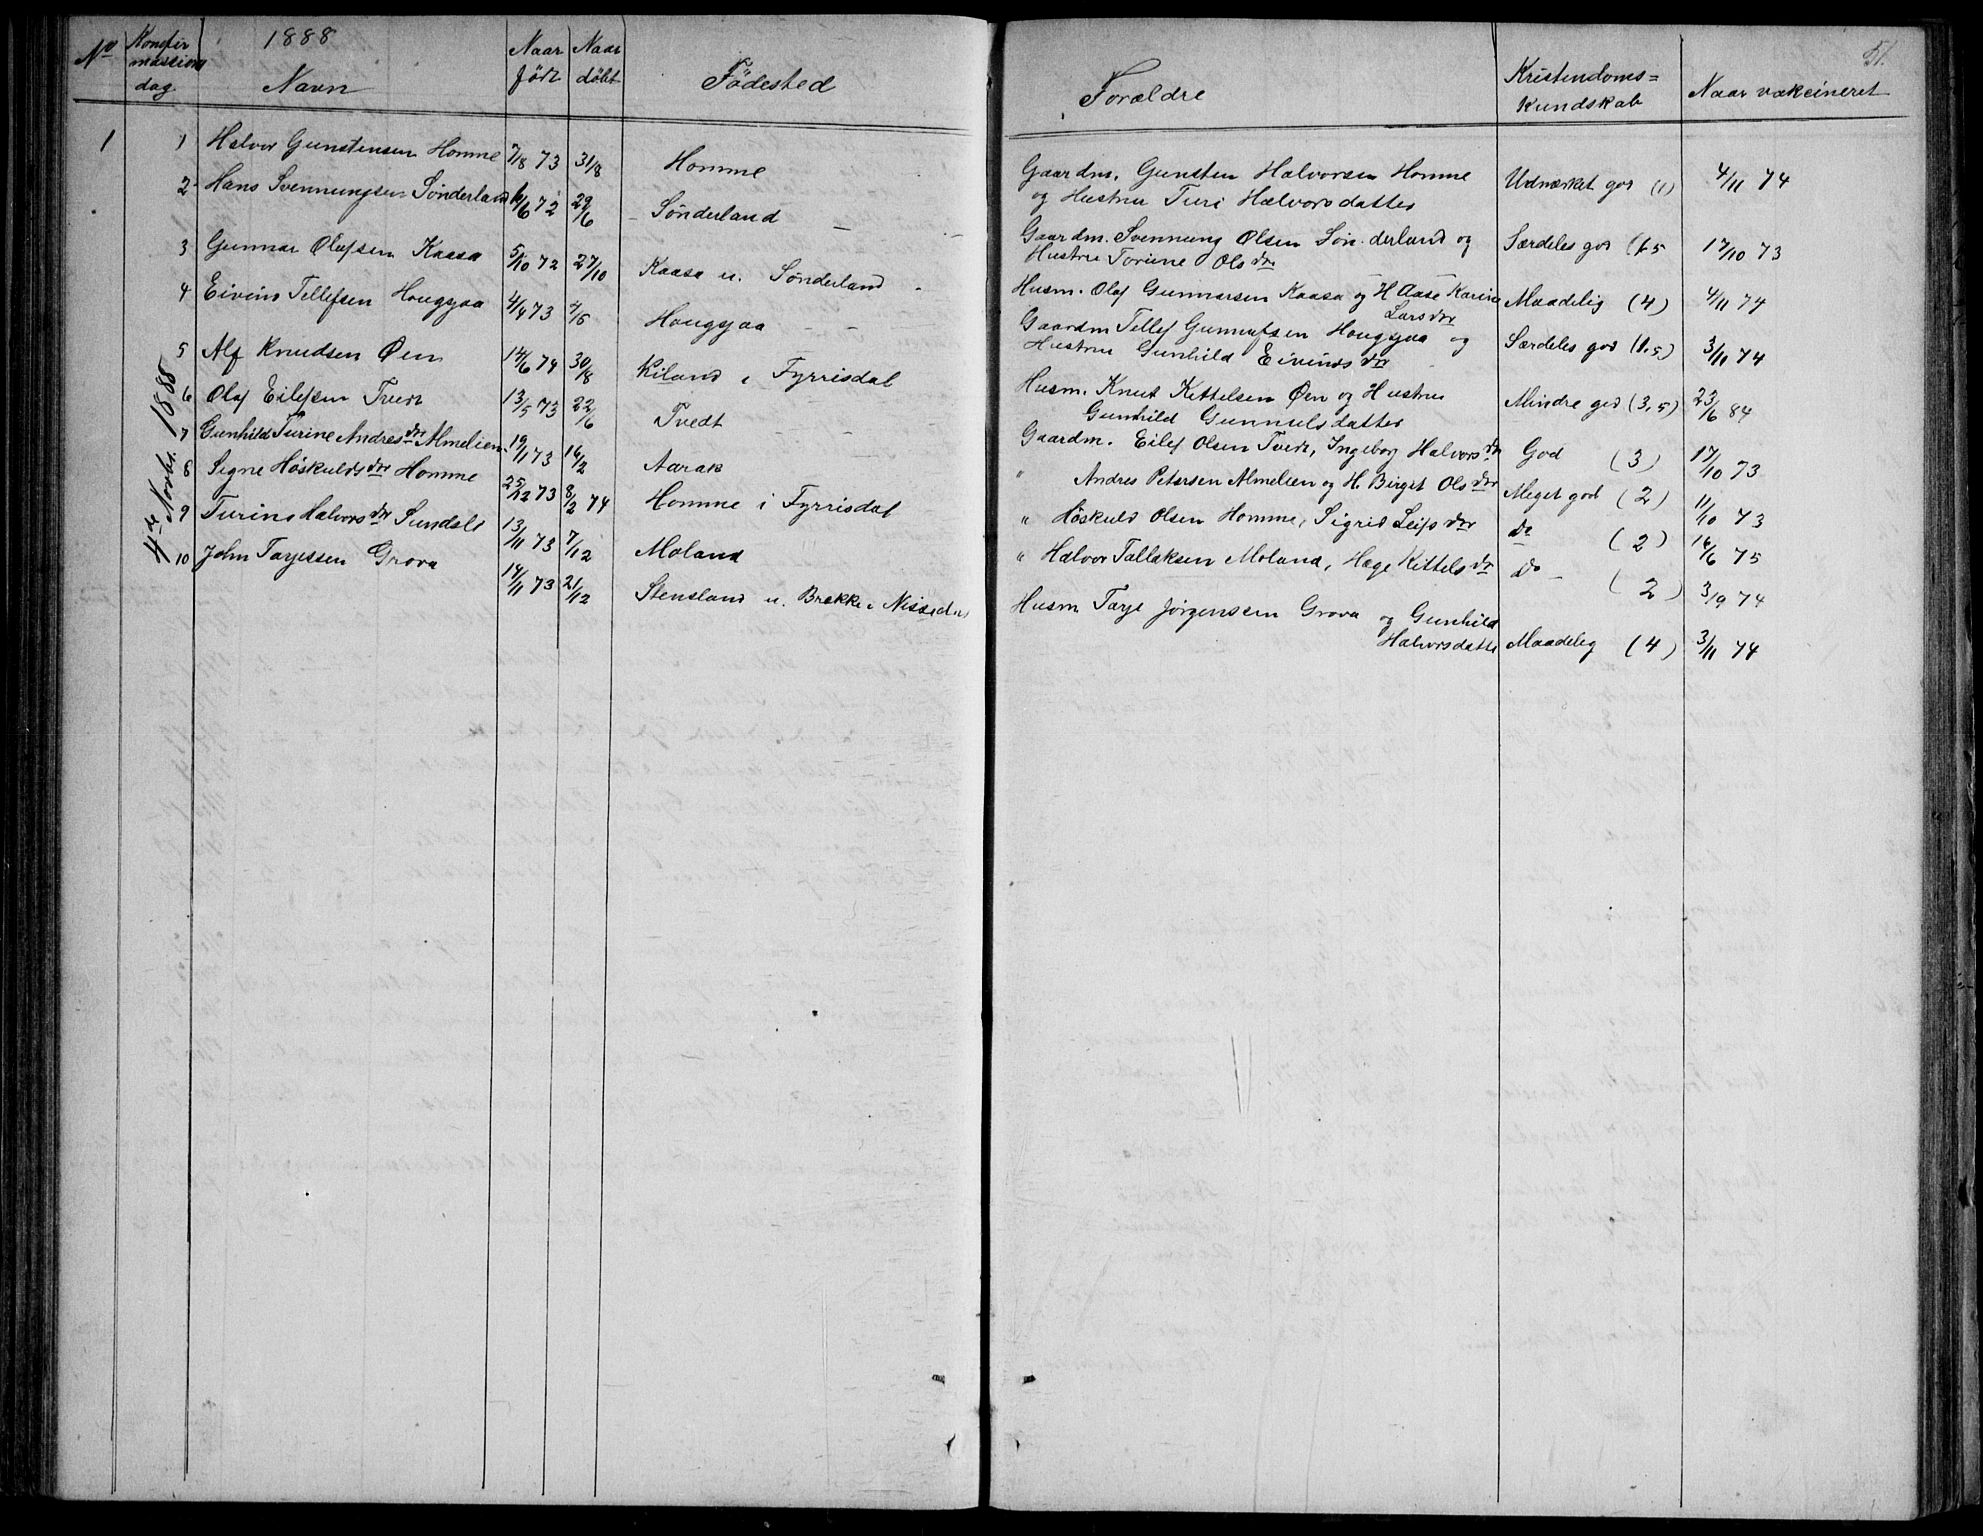 1888
51.
No Konfirmassions dag. Navn Naar født Naar døbt Fødested Forældre Kristendoms= Kundskab Naar vakcineret
4de Novbr. 1888
1 1 Halvor Gunstensen Homme 7/8 73 31/8 Homme Gaardm. Gunsten Halvorsen Homme Udmærket god (1) 4/11 74
og Hustru Turi Halvorsdatter
2 Hans Svennungsen Sønderland 6/6 72 29/6 Sønderland Gaardm. Svennung Olsen Sønderland og Særdeles god (1.5 17/10 73
Hustru Torine Olsdtr
3 Gunnar Olafsen Kaasa 5/10 72 27/10 Kaasa u. Sønderland Husm. Olaf Gunnarsen Kaasa og H Aase Karine Maadelig (4) 4/11 74
Larsdtr
4 Eivind Tellefsen Hougsjaa 4/4 73 Hougsjaa Gaardm Tellef Hougsjaa og Særdeles god (1.5) 3/11 74
Hustru Gunhild Eivindsdtr
5 Alf Knudsen Øen 14/6 74 30/8 Kiland i Fyrrisdal Husm. Knut Kittelsen Øen og Hustru Mindre god (3,5) 23/6 84
Gunhild Gunnulsdatter
6 Olaf Eilefsen Tvedt 13/5 73 22/6 Tvedt Gaardm. Eilef Olsen Tvedt, Ingeborg Halvorsdtr God (3) 17/10 73
7 Gunhild Turine Andresdtr Almelien 19/1 73 16/2 Aarak " Andres Petersen Almelien og H. Birget Olsdtr Meget god (2) 11/10 73
8 Signe Höskuldsdtr Homme 25/12 73 8/2 74 Homme i Fyrrisdal " Höskuld Olsen Homme, Sigrid Leifsdtr Do (2) 16/6 75
9 Turine Halvorsdtr Sundsli 13/11 73 7/12 Moland " Halvor Tallaksen Moland, Hæge Kittelsdtr Do (2) 3/9 74
10 John Tarjessen Grova 14/11 73 21/12 Stensland u. Brekke i Nissedal Husm Tarje Jörgenssen Grova og Gunhild
Halvorsdatter Maadelig (4) 3/11 74